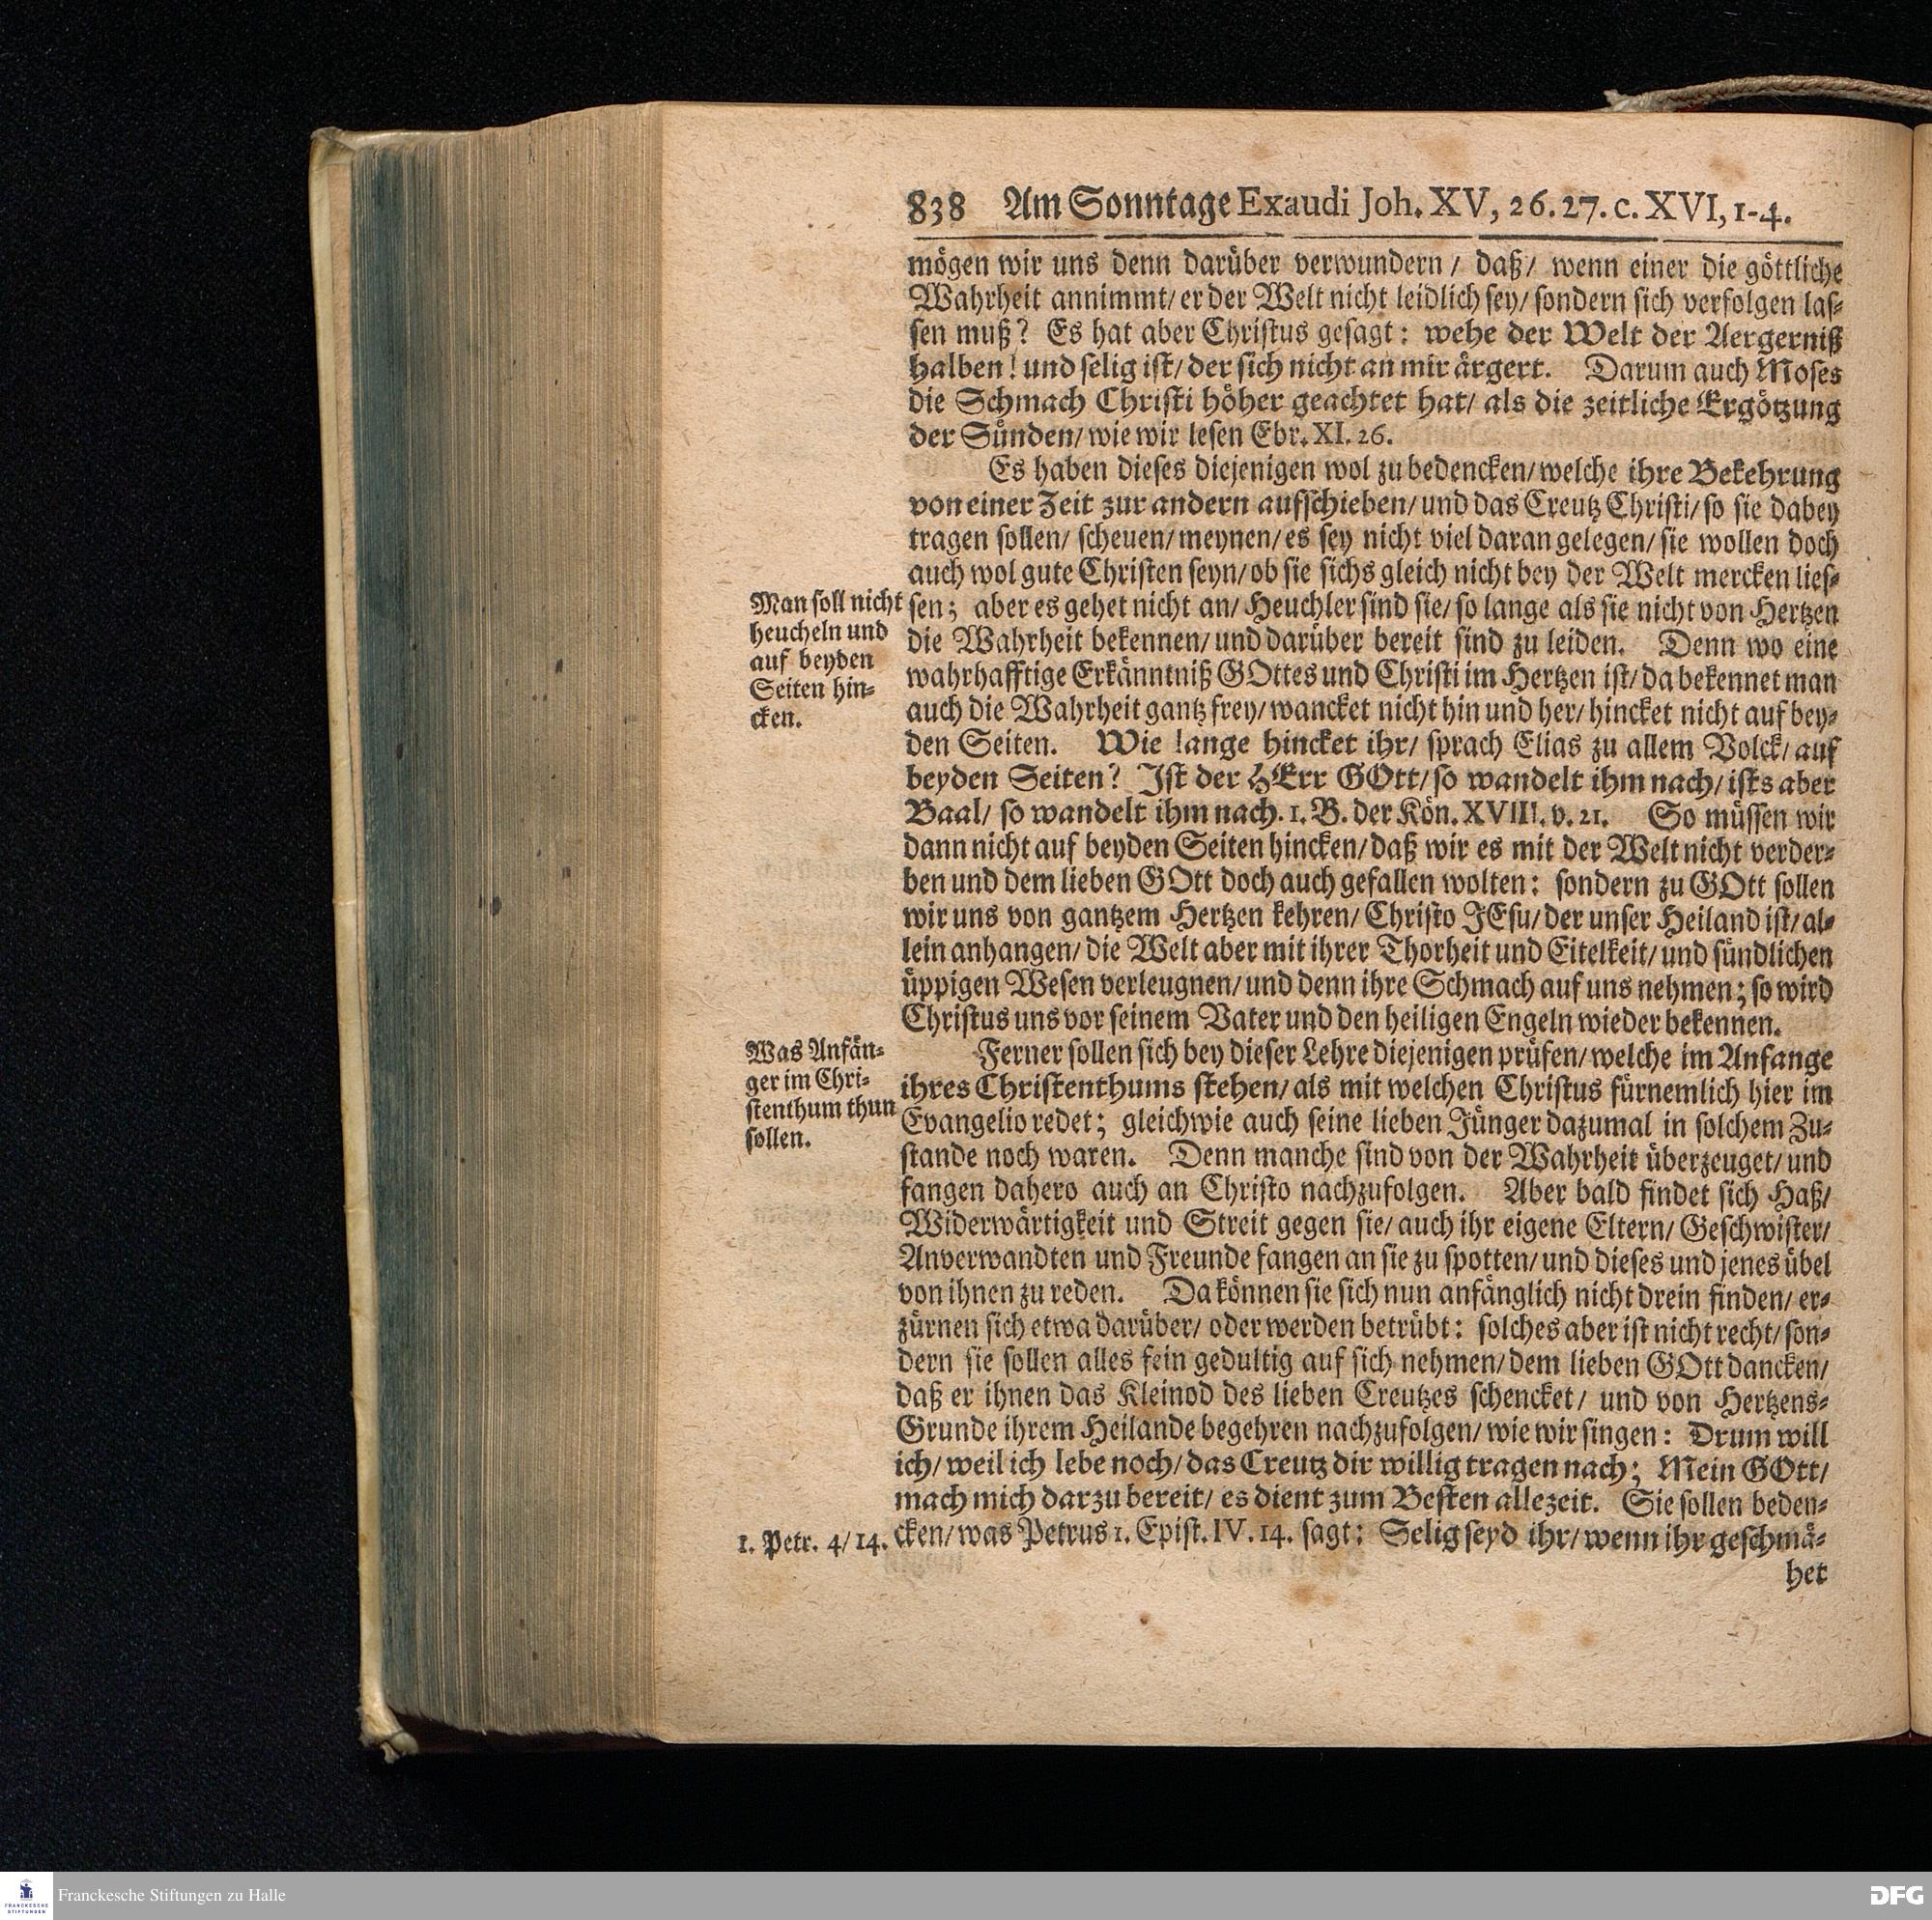 838 Am Sonntage Exaudi Joh. XV, 26. 27. c. XVI, 1-4.
mögen wir uns denn darüber verwundern / daß / wenn einer die göttliche
Wahrheit annimmt / er der Welt nicht leidlich sey / sondern sich verfolgen las-
sen muß? Es hat aber Christus gesagt: wehe der Welt der Aergerniß
halben! und selig ist / der sich nicht an mir ärgert. Darum auch Moses
die Schmach Christi höher geachtet hat / als die zeitliche Ergötzung
der Sünden / wie wir lesen Ebr. XI. 26.
Es haben dieses diejenigen wol zu bedencken / welche ihre Bekehrung
von einer Zeit zur andern aufschieben / und das Creutz Christi / so sie dabey
tragen sollen / scheuen / meynen / es sey nicht viel daran gelegen / sie wollen doch
auch wol gute Christen seyn / ob sie sichs gleich nicht bey der Welt mercken lies-
sen; aber es gehet nicht an / Heuchler sind sie / so lange als sie nicht von Hertzen
die Wahrheit bekennen / und darüber bereit sind zu leiden. Denn wo eine
wahrhafftige Erkänntniß GOttes und Christi im Hertzen ist / da bekennet man
auch die Wahrheit gantz frey / wancket nicht hin und her / hincket nicht auf bey-
den Seiten. Wie lange hincket ihr / sprach Elias zu allem Volck / auf
beyden Seiten? Ist der HErr GOtt / so wandelt ihm nach / ists aber
Baal / so wandelt ihm nach. 1. B. der Kön. XVIII. v. 21. So müssen wir
dann nicht auf beyden Seiten hincken / daß wir es mit der Welt nicht verder-
ben und dem lieben GOtt doch auch gefallen wolten: sondern zu GOtt sollen
wir uns von gantzem Hertzen kehren / Christo JEsu / der unser Heiland ist / al-
lein anhangen / die Welt aber mit ihrer Thorheit und Eitelkeit / und sündlichen
üppigen Wesen verleugnen / und denn ihre Schmach auf uns nehmen; so wird
Christus uns vor seinem Vater und den heiligen Engeln wieder bekennen.
Ferner sollen sich bey dieser Lehre diejenigen prüfen / welche im Anfange
ihres Christenthums stehen / als mit welchen Christus fürnemlich hier im
Evangelio redet; gleichwie auch seine lieben Jünger dazumal in solchem Zu-
stande noch waren. Denn manche sind von der Wahrheit überzeuget / und
fangen dahero auch an Christo nachzufolgen. Aber bald findet sich Haß /
Widerwärtigkeit und Streit gegen sie / auch ihr eigene Eltern / Geschwister /
Anverwandten und Freunde fangen an sie zu spotten / und dieses und jenes übel
von ihnen zu reden. Da können sie sich nun anfänglich nicht drein finden / er-
zürnen sich etwa darüber / oder werden betrübt: solches aber ist nicht recht / son-
dern sie sollen alles fein gedultig auf sich nehmen / dem lieben GOtt dancken /
daß er ihnen das Kleinod des lieben Creutzes schencket / und von Hertzens-
Grunde ihrem Heilande begehren nachzufolgen / wie wir singen: Drum will
ich / weil ich lebe noch / das Creutz dir willig tragen nach; Mein GOtt /
mach mich darzu bereit / es dient zum Besten allezeit. Sie sollen beden-
cken / was Petrus 1. Epist. IV. 14. sagt: Selig seyd ihr / wenn ihr geschmä-
het
Man soll nicht
heucheln und
auf beyden
Seiten hin-
cken.
Was Anfän-
ger im Chri-
stenthum thun
sollen.
1. Petr. 4 / 14.
FRANCKESCHE
STIFTUNGEN
Franckesche Stiftungen zu Halle
DFG